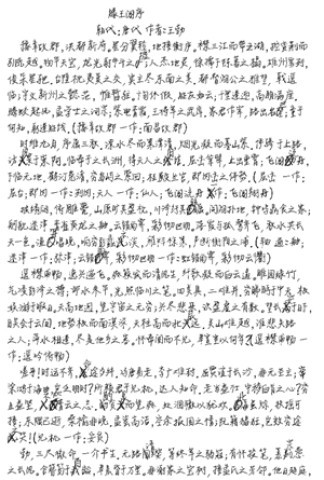 滕王阁序
朝代：唐代 作者：王勃
豫章故郡，洪都新府。星分翼轸，地接衡庐。襟三江而带五湖，控蛮荆而
引瓯越。物华天宝，龙光射牛斗之墟；人杰地灵，徐孺下陈蕃之榻。雄州雾列，
俊采星驰。台隍枕夷夏之交，宾主尽东南之美。都督阎公之雅望，棨戟遥
临；宇文新州之懿范，襜帷暂驻。十旬休假，胜友如云；千里逢迎，高朋满座。
腾蛟起凤，孟学士之词宗；紫电青霜，王将军之武库。家君作宰，路出名区；童子
何知，躬逢胜饯。（豫章故郡 一作：南昌故郡）
时维九月，序属三秋。潦水尽而寒潭清，烟光凝而暮山紫。俨骖騑于上路，
访风景于崇阿。临帝子之长洲，得天人之旧馆。层峦耸翠，上出重霄；飞阁翔丹，
下临无地。鹤汀凫渚，穷岛屿之萦回；桂殿兰宫，即冈峦之体势。（层峦 一作：
层台；即冈 一作：列冈；天人 一作：仙人；飞阁流丹 一作：飞阁翔丹）
披绣闼，俯雕甍，山原旷其盈视，川泽纡其骇瞩。闾阎扑地，钟鸣鼎食之家；
舸舰迷津，青雀黄龙之舳。云销雨霁，彩彻区明。落霞与孤鹜齐飞，秋水共长
天一色。渔舟唱晚，响穷彭蠡之滨；雁阵惊寒，声断衡阳之浦。（轴 通：舳；
迷津 一作：弥津；云销雨霁
遥襟甫畅，逸兴遄飞。爽籁发而清风生，纤歌凝而白云遏。睢园绿竹，
气凌彭泽之樽；邺水朱华，光照临川之笔。四美具，二难并。穷睇眄于中天，极
娱游于暇日。天高地迥，觉宇宙之无穷；兴尽悲来，识盈虚之有数。望长安于日
下，目吴会于云间。地势极而南溟深，天柱高而北辰远。关山难越，谁悲失路
之人；萍水相逢，尽是他乡之客。怀帝阍而不见，奉宣室以何年？（遥襟甫畅 一
作：遥吟俯畅）
嗟乎！时运不齐，命途多舛。冯唐易老，李广难封。屈贾谊于长沙，非无圣主；窜
梁鸿于海曲，岂乏明时？所赖君子见机，达人知命。老当益壮，宁移白首之心？穷
且益坚，不坠青云之志。酌贪泉而觉爽，处涸辙以犹欢。北海虽赊，扶摇可
接；东隅已逝，桑榆非晚。孟尝高洁，空余报国之情；阮籍猖狂，岂效穷途
之哭！（见机 一作：安贫）
勃，三尺微命，一介书生。无路请缨，等终军之弱冠；有怀投笔，慕宗悫
之长风。舍簪笏于百龄，奉晨昏于万里。非谢家之宝树，接孟氏之芳邻。他日趋庭，